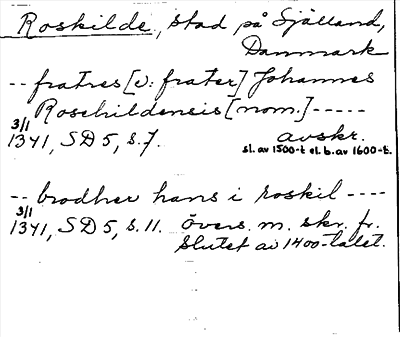 Roskilde, stad på Själland,
Danmark
-- fratres [ɔ: frater] Johannes
Roschildensis [nom.] -----
3/1
1341, SD 5, s. 7. avskr.
sl. av 1500-t el. b. av 1600-t.
-- brodher hans i roskil ----
3/1
1341, SD 5, s. 11. Övers. m. skr. fr.
slutet av 1400-talet.